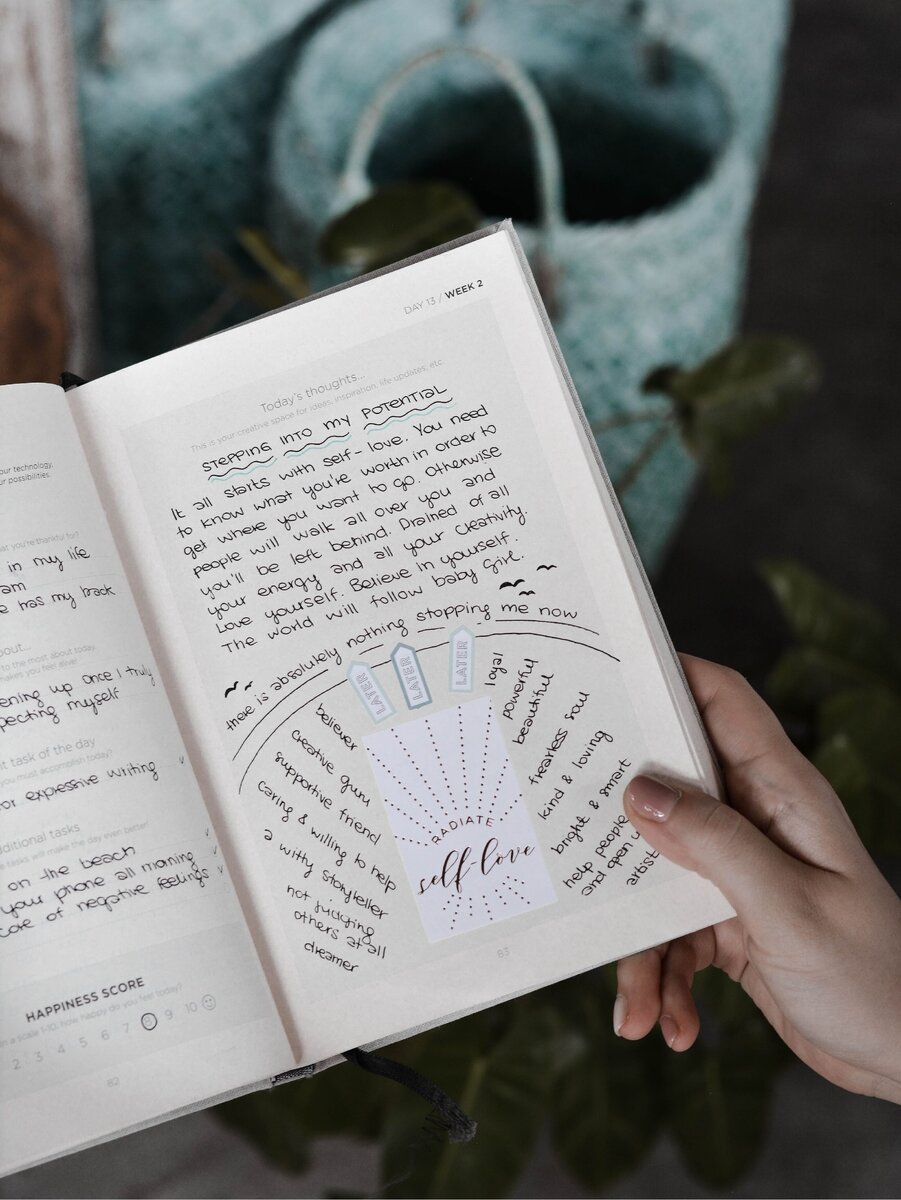 our technology,
ur possibilities.
hat you're thankful for?
in my life
am
e has my back
bout...
to the most about today
makes you feel alive!
ening up once I truly
pecting myself
nt task of the day
you must accomplish today?
or expressive writing
ditional tasks
e tasks will make the day even better!
on the beach
your phone all morning
care of negative feelings
HAPPINESS SCORE
n a scale 1-10, how happy do you feel today?
2 3 4 5 6 7 8 9 10
82
DAY 13 / WEEK 2
Today's thoughts...
This is your creative space for ideas, inspiration, life updates, etc
STEPPING INTO MY POTENTIAL
It all starts with self-love. You need
to know what you're worth in order to
get where you want to go. Otherwise
people will walk all over you and
you'll be left behind. Drained of all
your energy and all your creativity.
Love yourself. Believe in yourself.
The world will follow baby girl.
there is absolutely nothing stopping me now
LATER
LATER
LATER
believer
creative guru
supportive friend
caring & willing to help
a witty storyteller
not judging
others at all
dreamer
RADIATE
self-love
loyal
powerful
beautiful
fearless soul
kind & loving
bright & smart
help people
and open u
artist
83